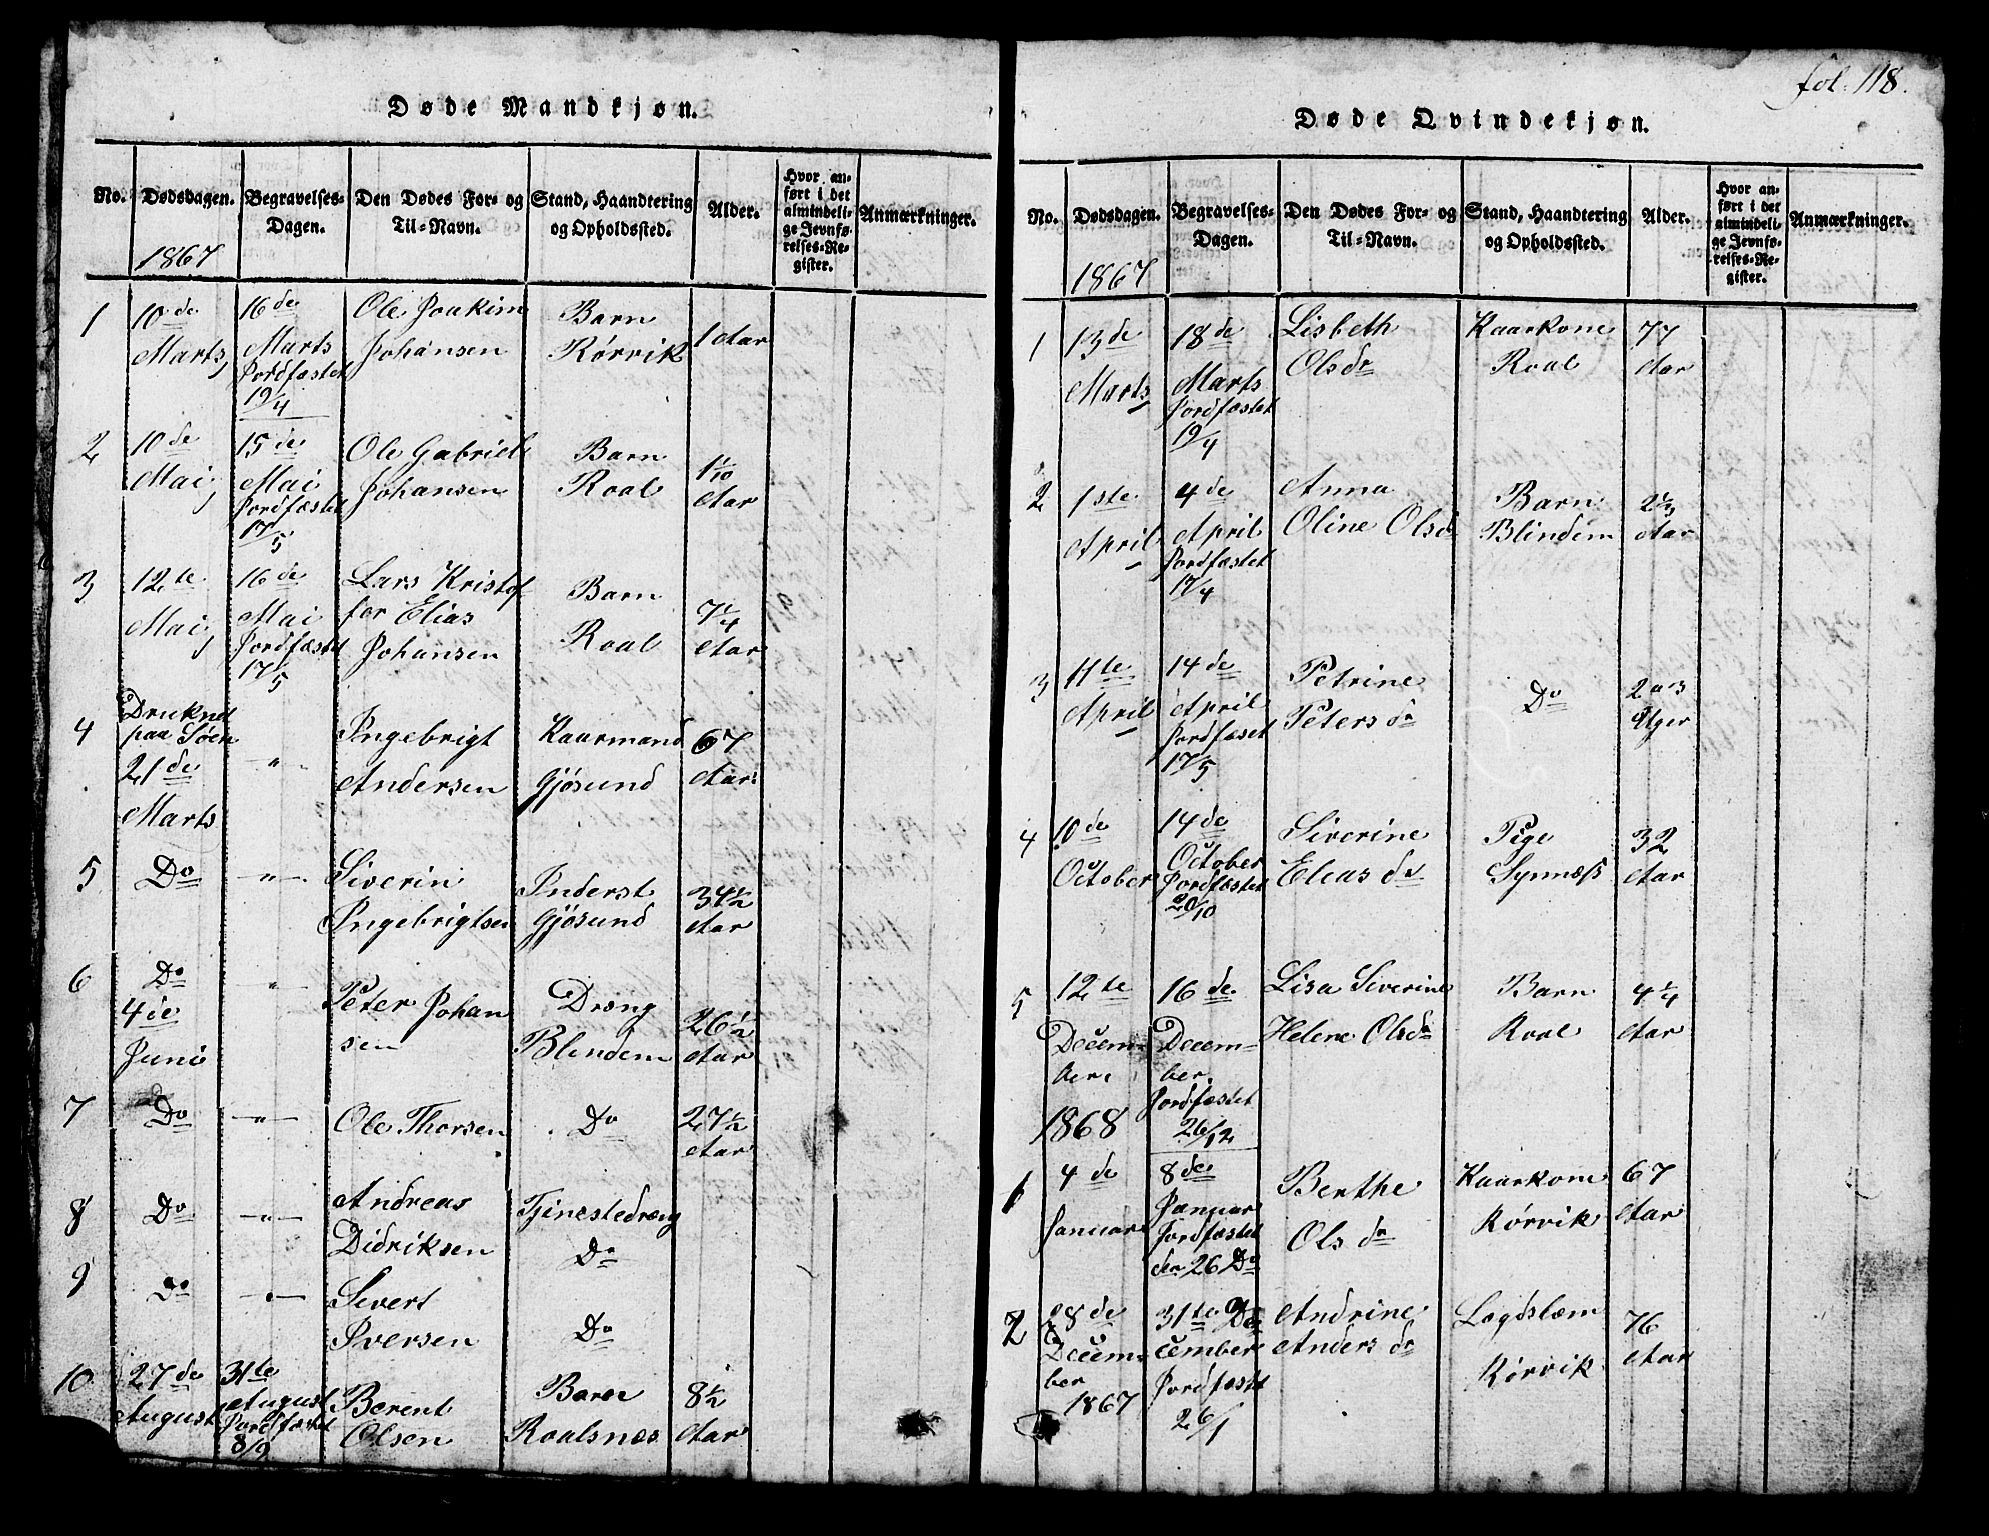 fol. 118.
Døde Mandkjøn.
No.
Dødsdagen.
Begravelses-
Dagen.
Den Dødes For- og
Til-Navn.
Stand, Haandtering
og Opholdssted.
Alder.
Hvor an-
ført i det
almindeli-
ge Jevnfø-
relses-Re-
gister.
Anmærkninger.
1867
1
10de
Marts,
16de
Marts
Jordfæstet
19/4
Ole Joakim
Johansen
Barn
Rørvik
1 Aar
2
10de
Mai,
15de
Mai
Jordfæstet
17/5
Ole Gabriel
Johansen
Barn
Roal
1 1/10
Aar
3
12te
Mai,
16de
Mai
Jordfæstet
17/5
Lars Kristof
fer Elias
Johansen
Barn
Roal
7 1/4
Aar
4
Druknet
paa Søen
21de
Marts
"
Ingebrigt
Andersen
Kaarmand
Gjøsund
67
Aar
5
Do
"
Siverin
Ingebrigtsen
Inderst
Gjøsund
34 1/2
Aar
6
Do
4de
Juni
"
Peter Johan
sen
Dræng
Blindem
26 1/2
Aar
7
Do
"
Ole Thorsen
Do
27 1/2
Aar
8
Do
"
Andreas
Didriksen
Tjenestedræng
Do
9
Do
"
Sivert
Iversen
Do
10
27de
August
31te
August
Jordfæstet
8/9
Berent
Olsen
Barn
Roalsnes
8 1/2
Aar
Døde Qvindekjøn.
No.
Dødsdagen.
Begravelses-
Dagen.
Den Dødes For- og
Til-Navn.
Stand, Haandtering
og Opholdssted.
Alder.
Hvor an-
ført i det
almindeli-
ge Jevnfø-
relses-Re-
gister.
Anmærkninger.
1867
1
13de
Marts
18de
Marts
Jordfæstet
19/4
Lisbeth
Olsdr
Kaarkone
Roal
77
Aar
2
1ste
April
4de
April
Jordfæstet
17/4
Anna
Oline Olsd
Barn
Blindem
2 1/3
Aar
3
11te
April
14de
April
Jordfæset
17/5
Petrine
Petersdr
Do
2 a 3
Uger
4
10de
October
14de
October
Jordfæstet
20/10
Siverine
Eliasdr
Pige
Synnæss
32
Aar
5
12te
Decem-
ber
16de
Decem-
ber
Jordfæstet
26/12
Lisa Siverine
Helene Olsdr
Barn
Roal
4 1/4
Aar
1868
1
4de
Januar
8de
Januar
Jordfæstet
den 26 Do
Berthe
Olsdr
Kaarkone
Rørvik
67
Aar
2
28de
Decem-
ber
1867
31te De
cember
Jordfæstet
26/1
Andrine
Andersdr
Logdslæm
Rørvik
76
Aar